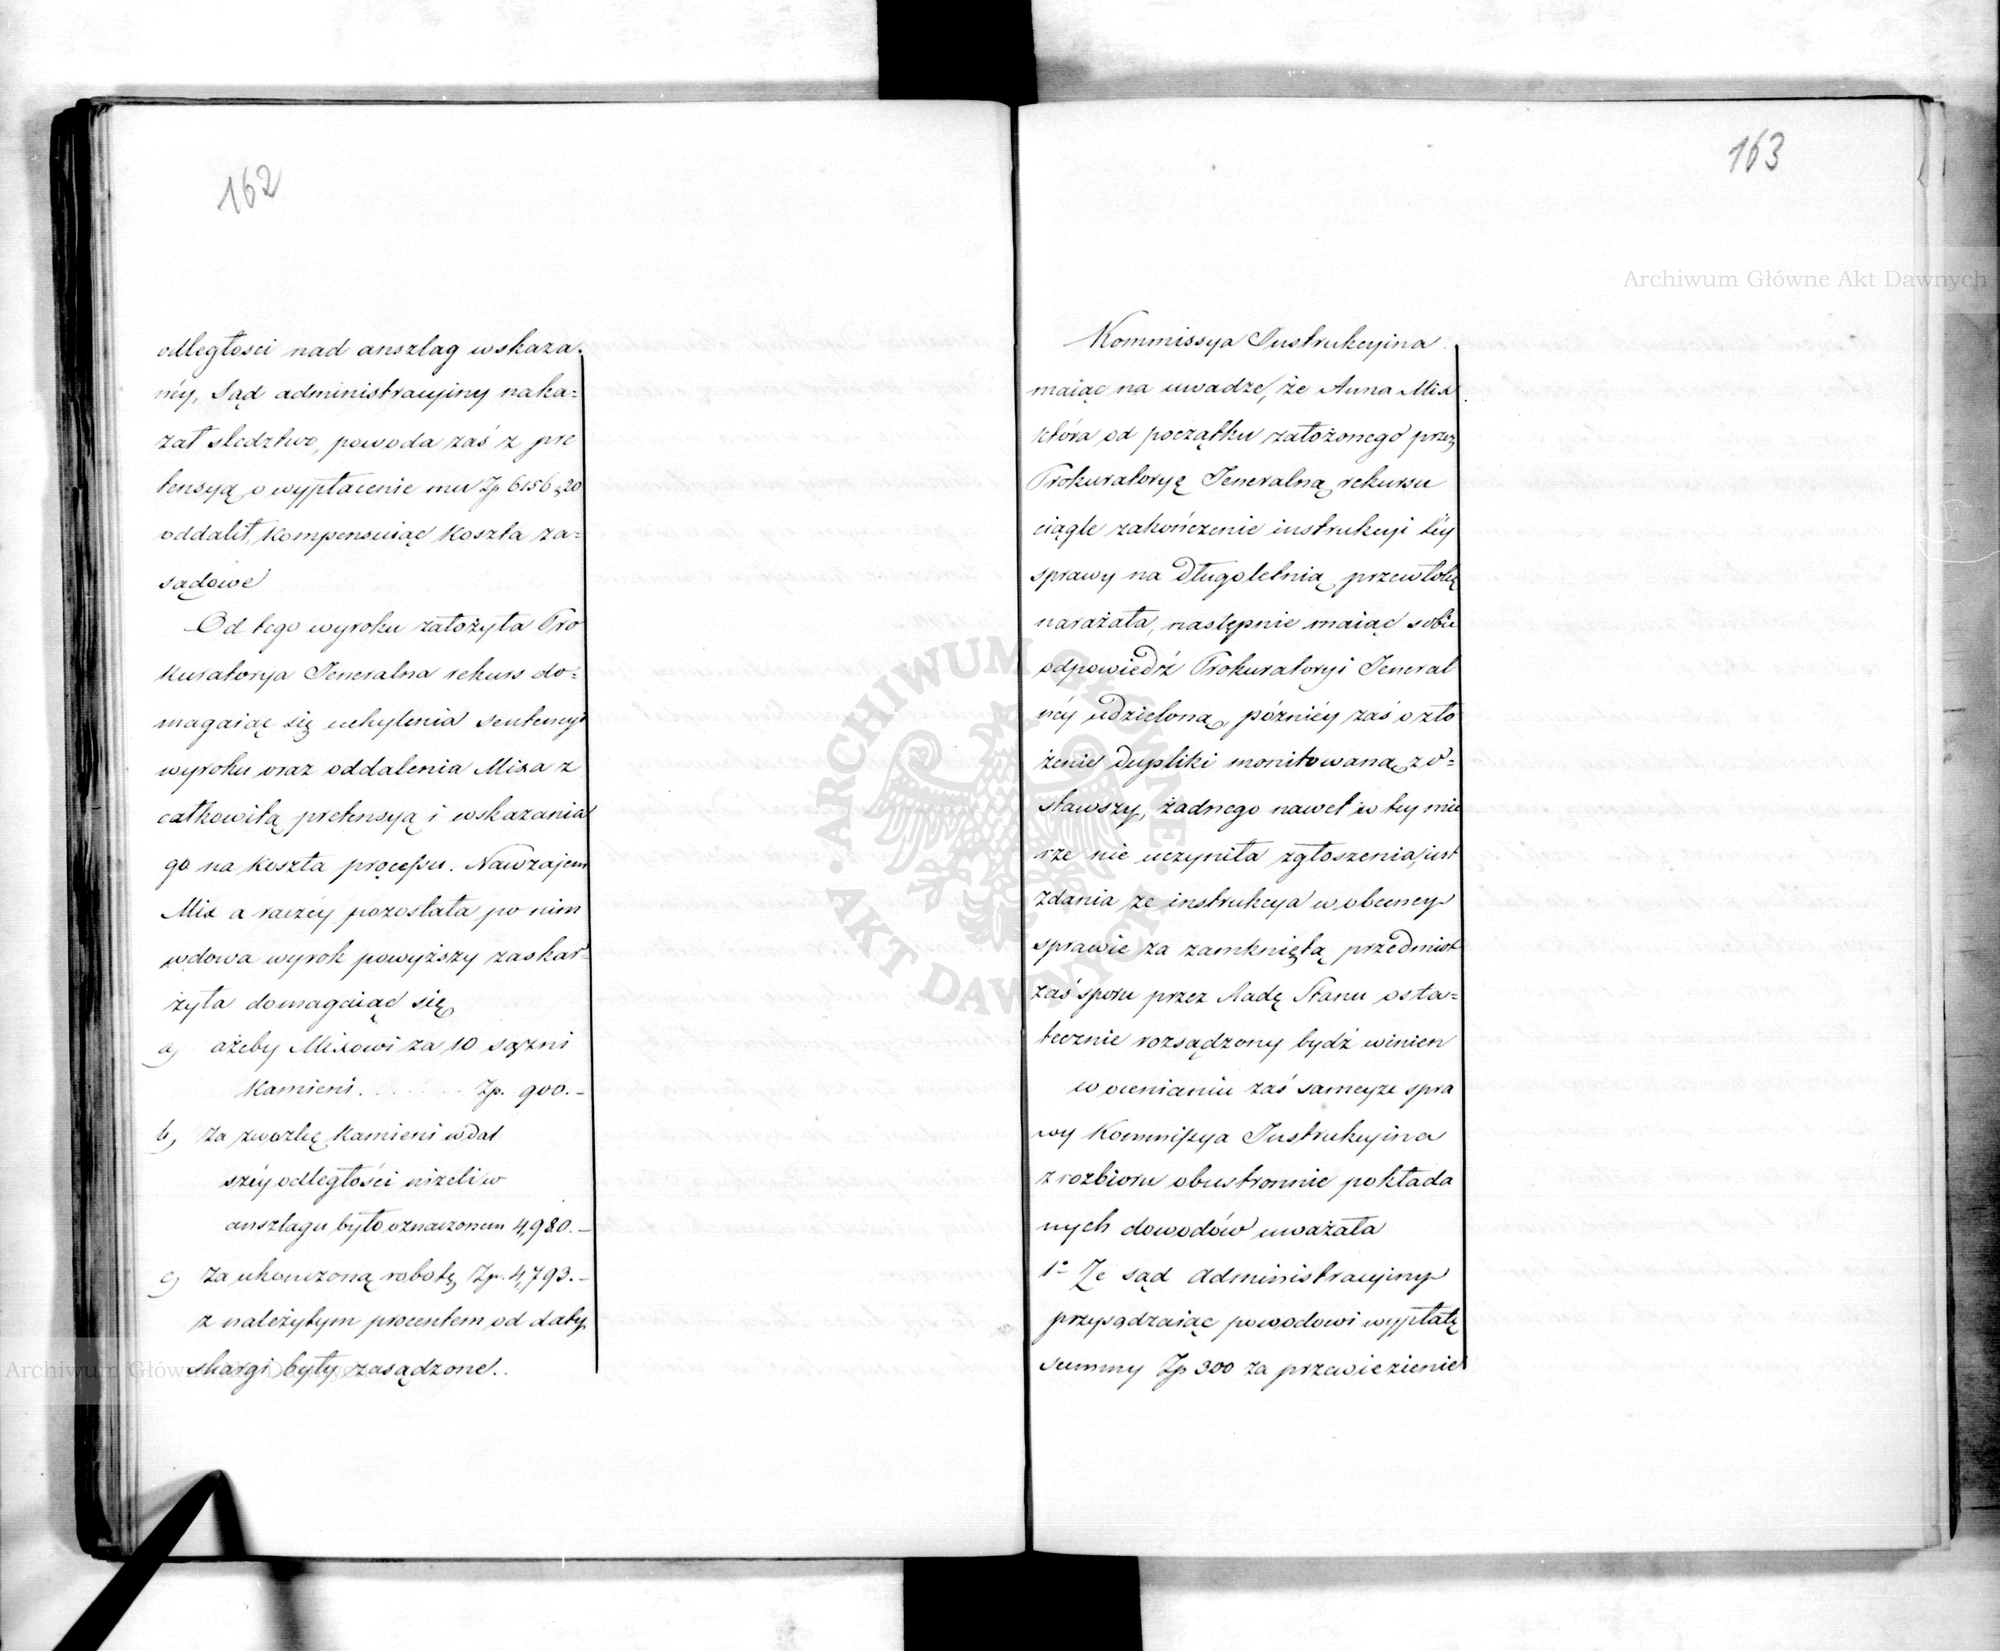 162
odległości nad anszlag wskaza-
néy, Sąd administracyjny naka=
zał sledztwo, powoda zaś z pre
tensyą o wypłacenie mu Zp 6156 g 20
oddalił, kompensuiąc koszta za=
sądowe
Od tego wyroku założyła Pro
kuratorya Jeneralna rekurs do=
magaiąc się uchylenia sentencyi
wyroku oraz oddalenia Mixa z
całkowitą pretensyą i wskazania
go na koszta processu. Nawzajem
Mix a raczéy pozostała po nim
wdowa wyrok powyższy zaskar=
żyła domagaiąc się
a) ażeby Mixowi za 10 sążni
kamieni . . . . . . Zp. 900.-
b) Za zwózkę kamieni w dal
széy odległości niżeli w
anszlagu było oznaczonem 4,980.-
c) Za ukończoną robotę Zp. 4,793.-
z należytym procentem od daty
skargi były zasądzone..
163
Kommissya Instrukcyjna
maiąc na uwadze, że Anna Mix
która od początku założonego przez
Prokuratoryę Jeneralną rekursu
ciągle zakończenie instrukcyi téy
sprawy na długoletnią przewłokę
narażała, następnie maiąc sobie
odpowiedź Prokuratoryi Jeneral
néy udzieloną, pózniéy zaś o zło
żenie dupliki monitowaną zo=
stawszy, żadnego nawet w tey mie
rze nie uczyniła zgłoszenia, iest
zdania ze instrukcya w obecney
sprawie za zamkniętą, przedmiot
zaś sporu przez Radę Stanu osta=
tecznie rozsądzony bydź winien
w ocenianiu zaś sameyże spra
wy Kommissya Instrukcyjna
z rozbioru obustronnie pokłada
nych dowodów uważała
1° Ze sąd Administracyjny
przysądzaiąc powodowi wypłatę
summy Zp 300 za przewiezienie
Archiwum Główne Akt Dawnych
ARCHIWUM GŁÓWNE AKT DAWNYCH
Archiwum Główne Akt Dawnych